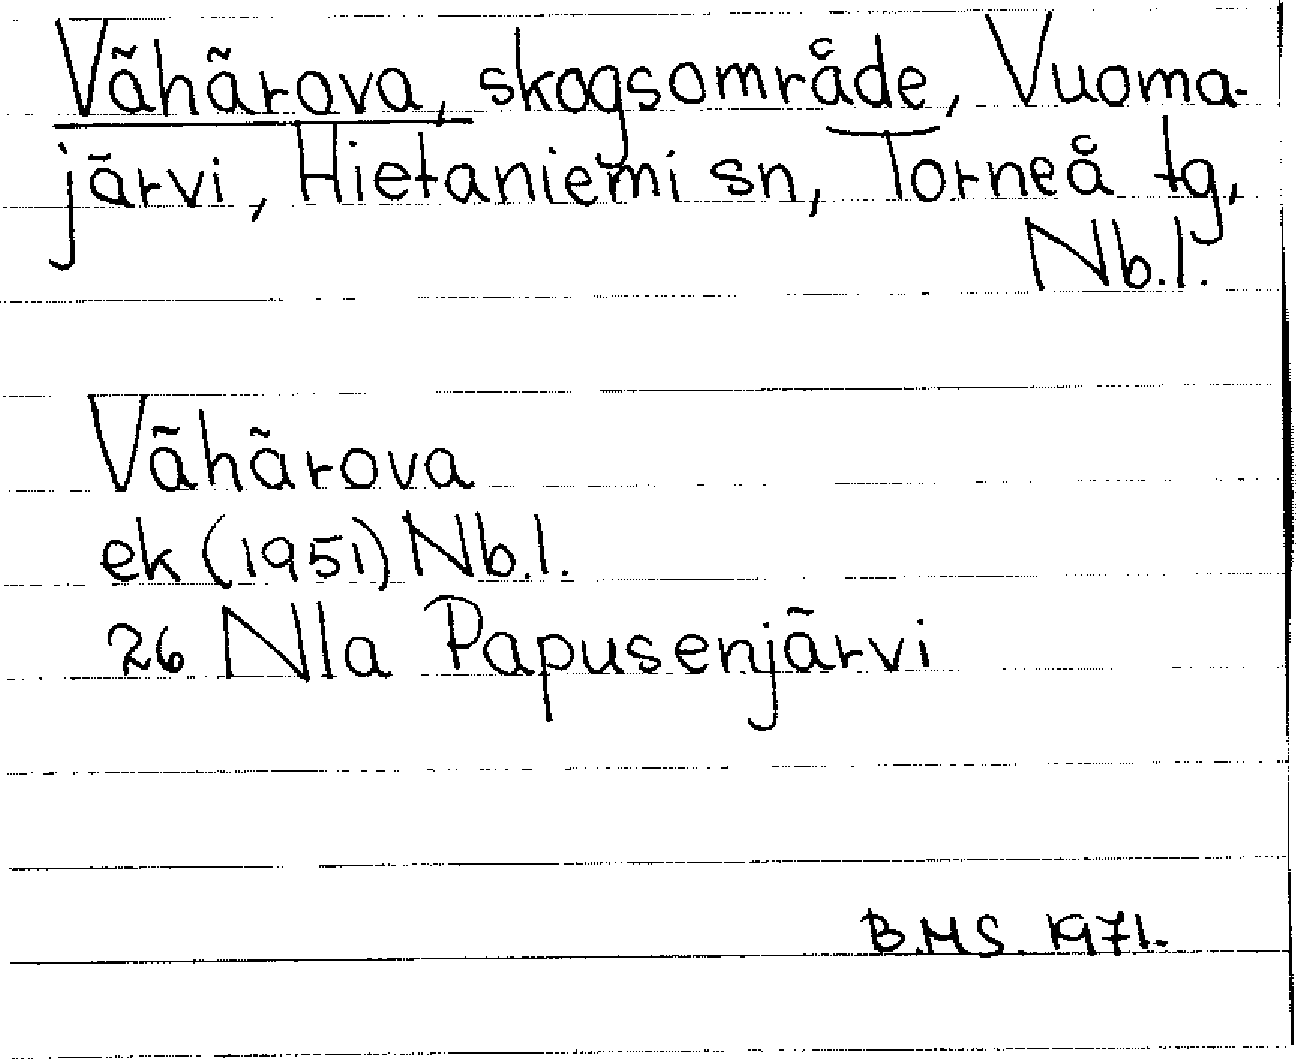 Vähärova, skogsområde, Vuoma-
järvi, Hietaniemi sn, Torneå tg,
Nb.l.
Vähärova
ek (1951) Nb.l.
26 Nla Papusenjärvi
B.MS. 1971.